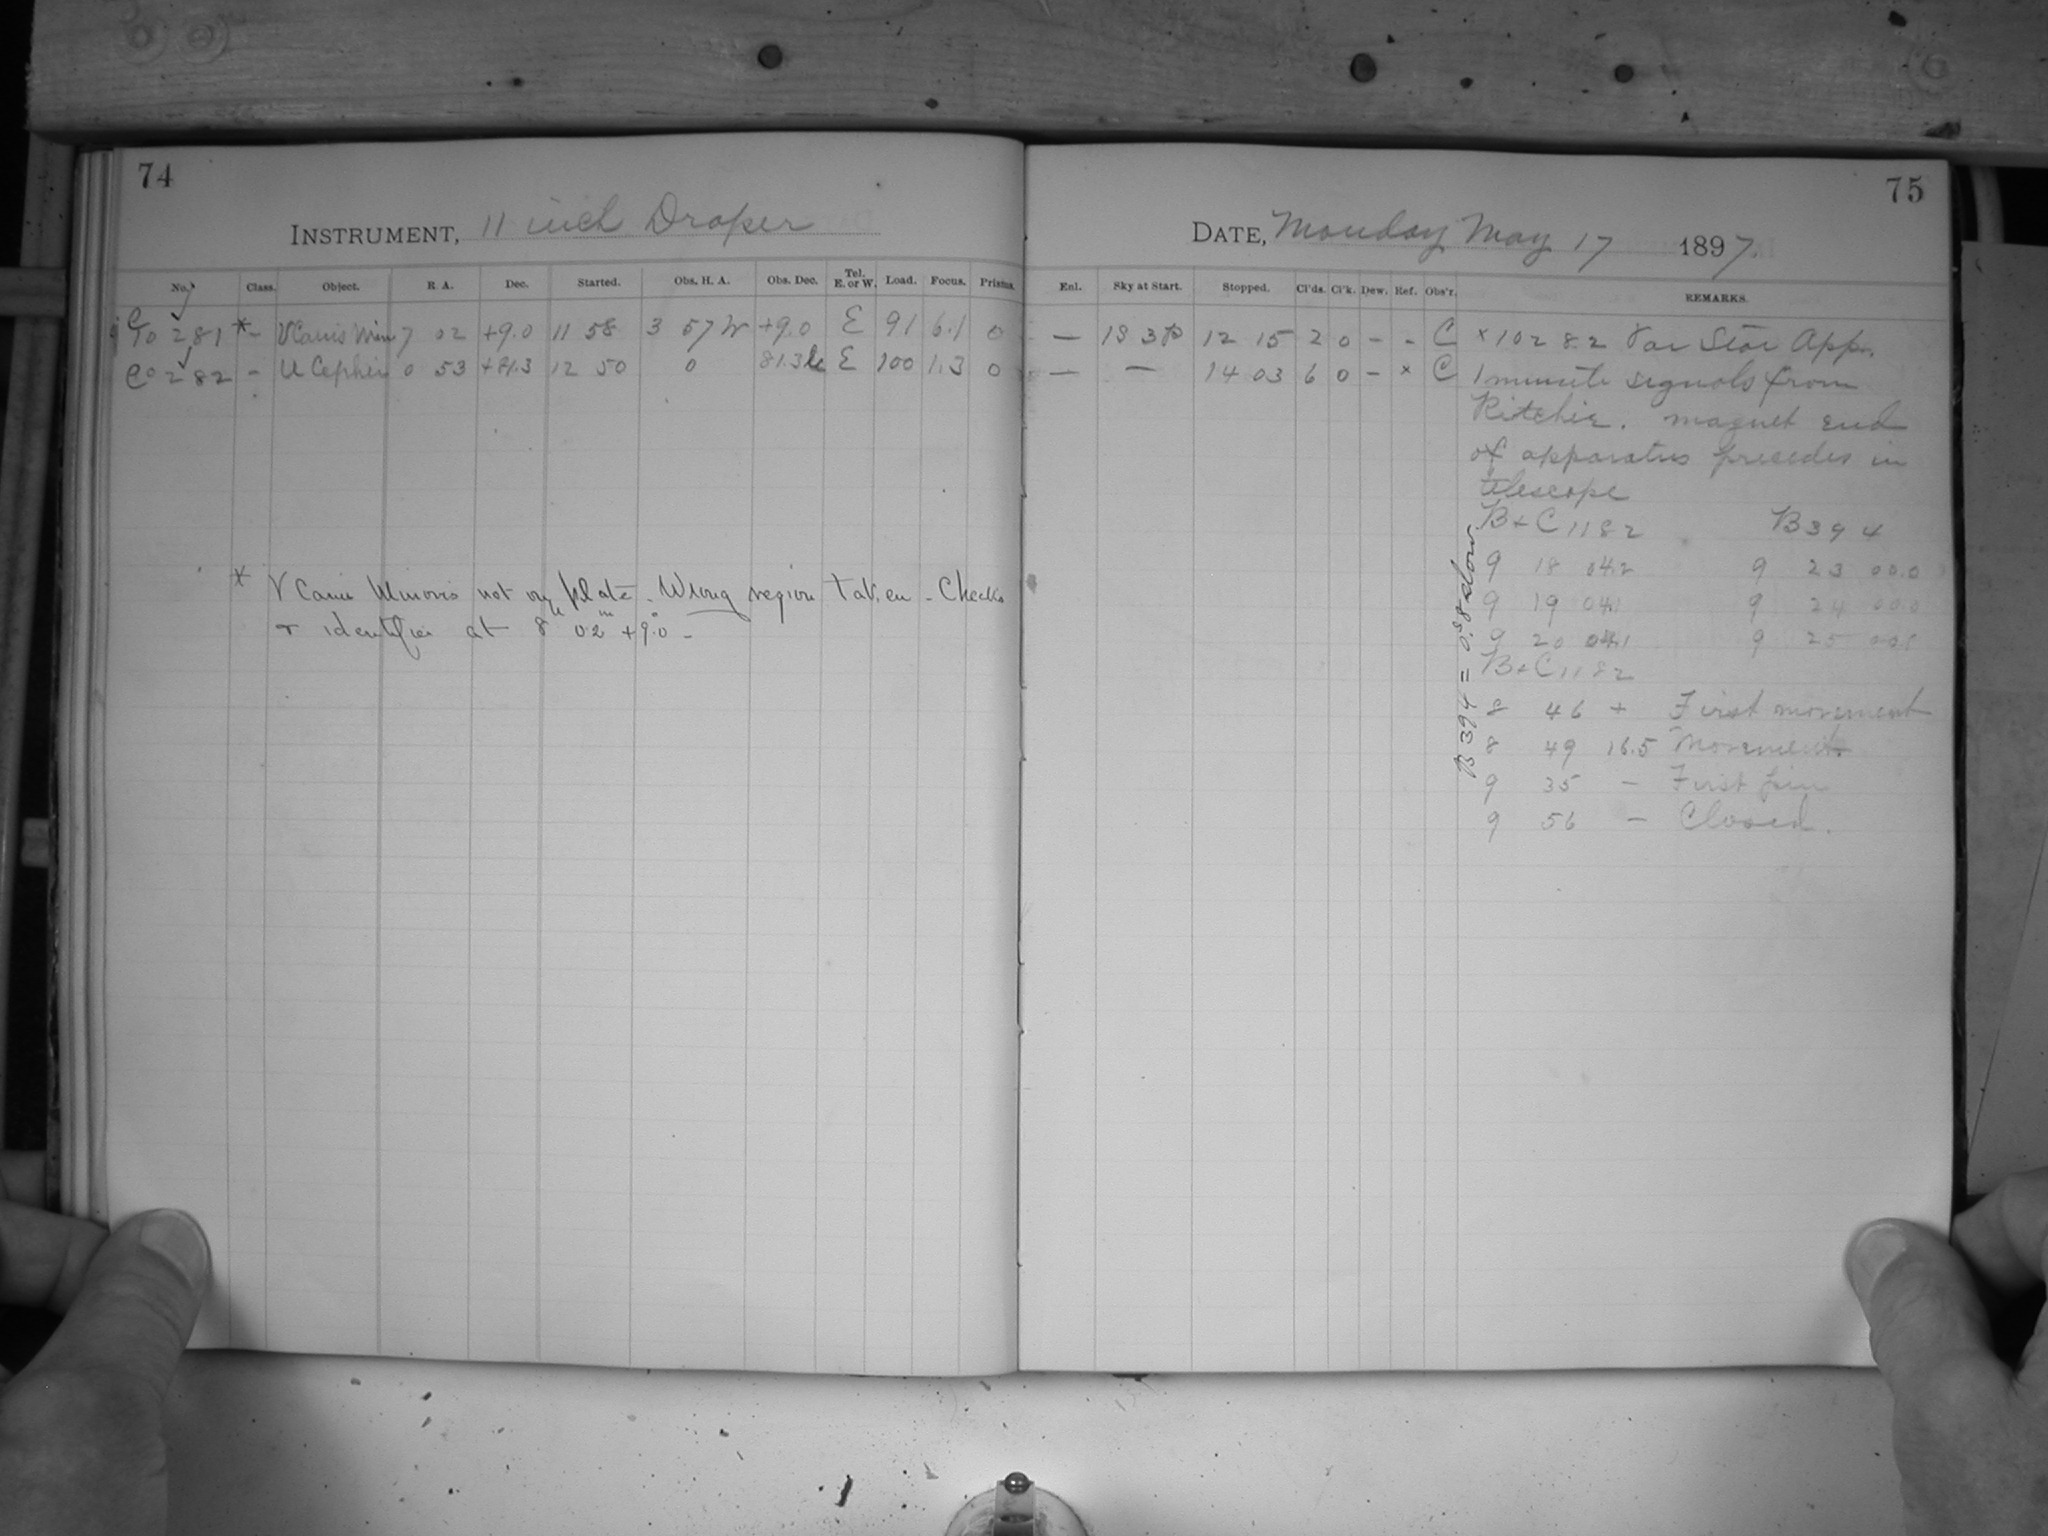 74
INSTRUMENT, 11 inch Draper
No. Class. Object. R. A. Dec. Started. Obs. H. A. Obs. Dec. Tel. E. or W. Load. Focus. Prisms.
C 10281 * - V Canis Min 7 02 +9.0 11 58 3 57 W +9.0 E 91 6.1 0
C 0282 - U Cephei 0 53 +81.3 12 50 0 81.3 E 100 1.3 0
* V Canis Minoris not on plate. Wrong region taken - Checks
+ identifies at 8h 02m +9°.0 -
75
DATE, Monday May 17 1897
Enl. Sky at Start. Stopped. Cl'ds. Cl'k. Dew. Ref. Obs'r. REMARKS.
— 12 15 2 0 - - C × 10282 Var Star App.
— — 14 03 6 0 - × C 1 minute signals from
Ritchie. magnet end
of apparatus precedes in
telescope
B+C 1182 B 394
9 18 04.2 9 23 00.0
9 19 04.1 9 24 00.0
9 20 04.1 9 25 00.1
B+C 1182
8 46 + First movement
8 49 16.5 Movement
9 35 - First
9 56 - Closed.
B 394 = 0s.58 slow